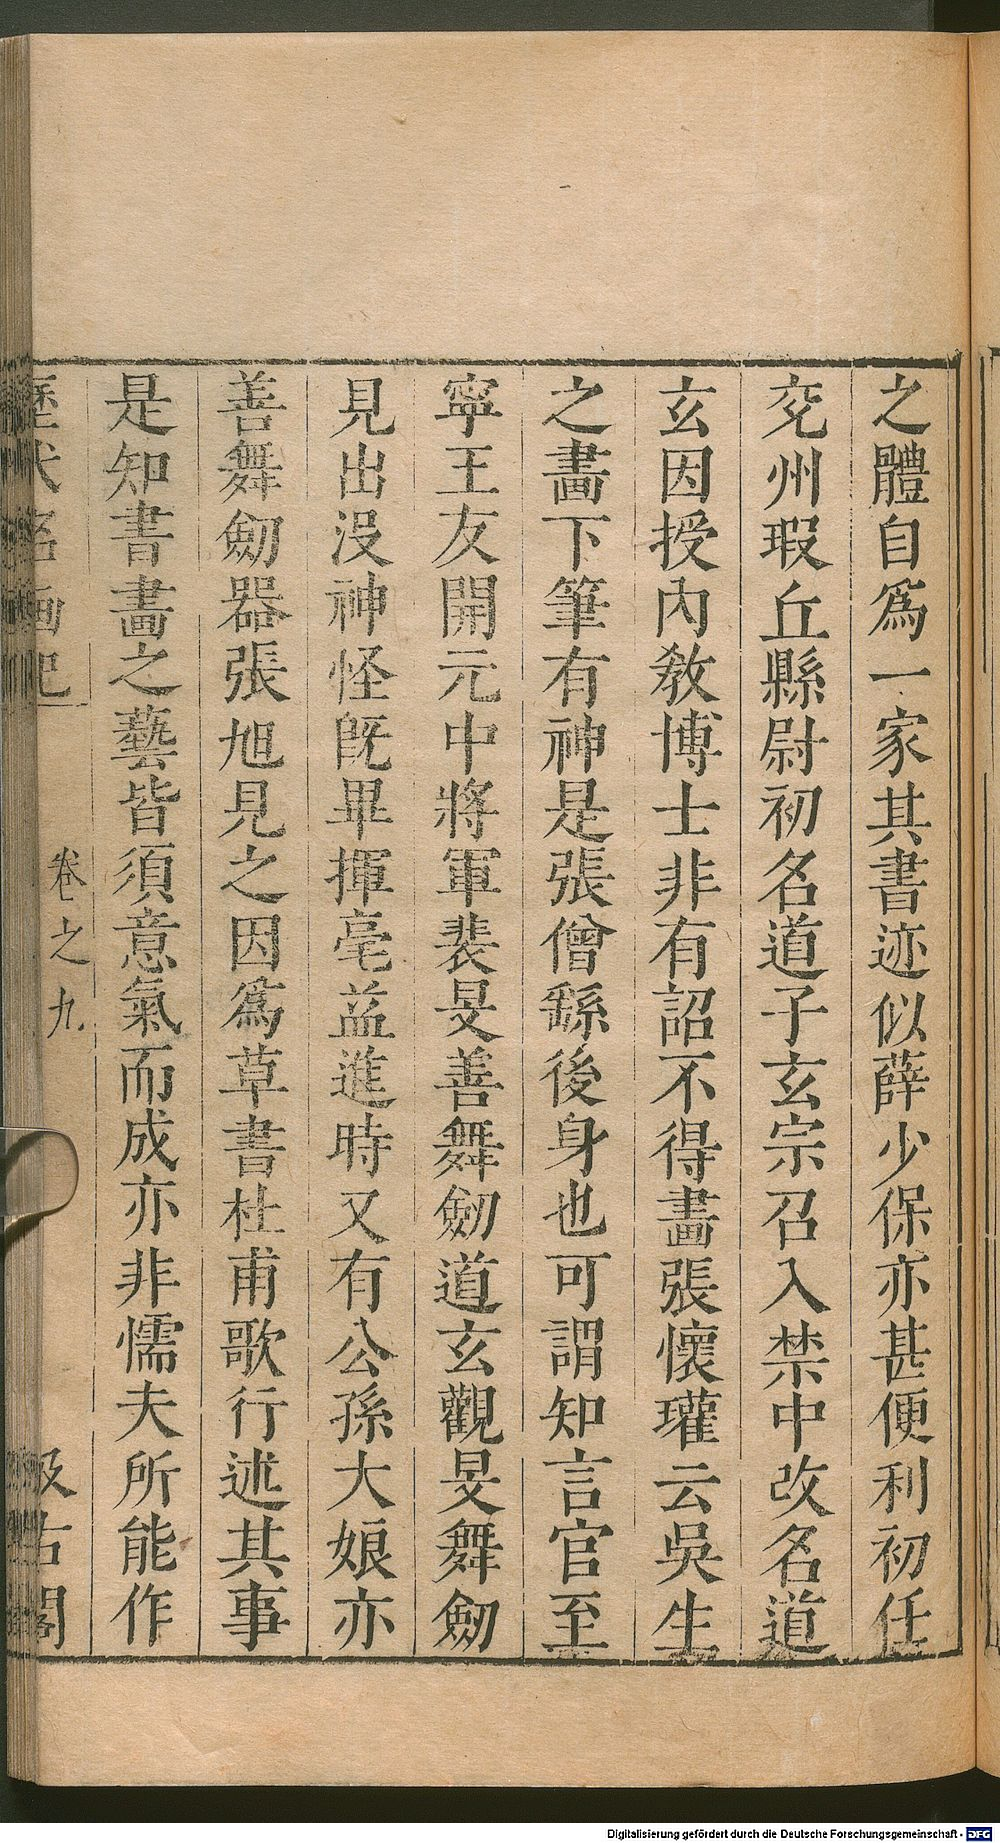 之體自爲一家其書迹似薛少保亦甚便利初任
兗州瑕丘縣尉初名道子玄宗召入禁中改名道
玄因授內敎博士非有詔不得畫張懷瓘云吳生
之畫下筆有神是張僧繇後身也可謂知言官至
寧王友開元中將軍裴旻善舞劒道玄觀旻舞劒
見出沒神怪旣畢揮毫益進時又有公孫大娘亦
善舞劒器張旭見之因爲草書杜甫歌行述其事
是知書畫之藝皆須意氣而成亦非懦夫所能作
歷代名画記 卷之九 汲古閣
Digitalisierung gefördert durch die Deutsche Forschungsgemeinschaft - DFG